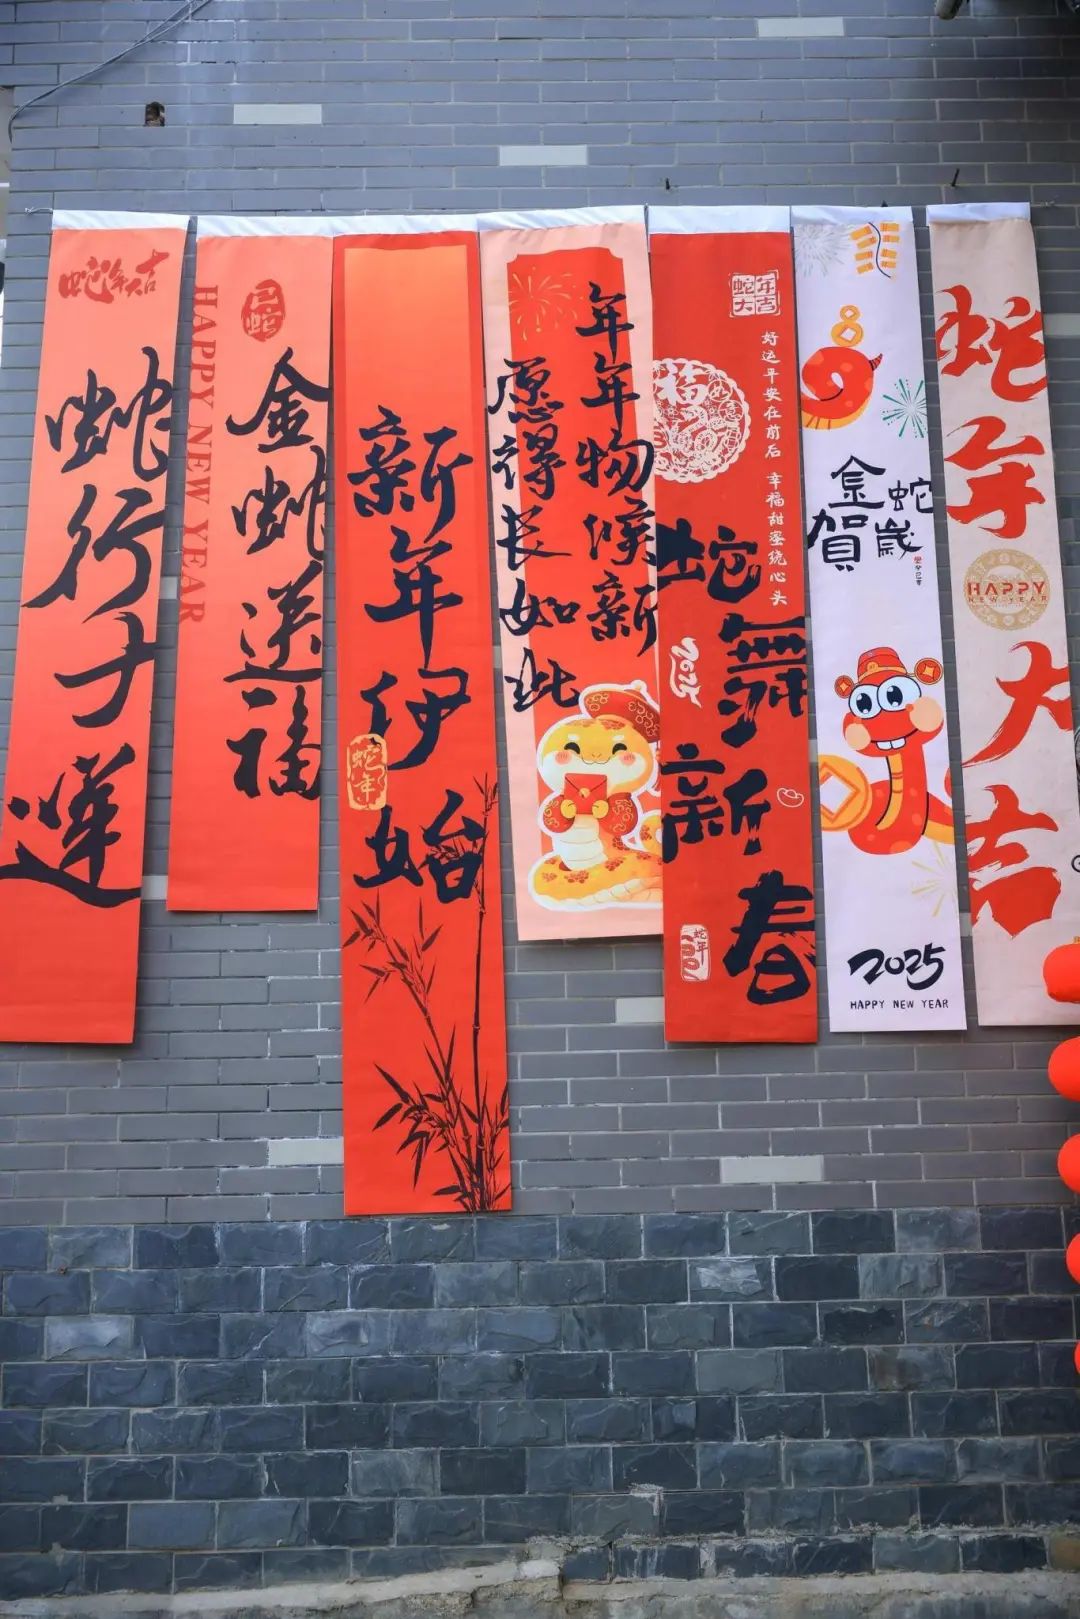 蛇年大吉
蛇行大运
HAPPY NEW YEAR
金蛇送福
新年伊始
蛇年
年年物候新
愿得长如此
蛇年大吉
好运平安在前后 幸福甜蜜绕心头
福
蛇舞新春
2025
蛇年
金蛇
賀歲
2025
HAPPY NEW YEAR
蛇年大吉
HAPPY
NEW YEAR